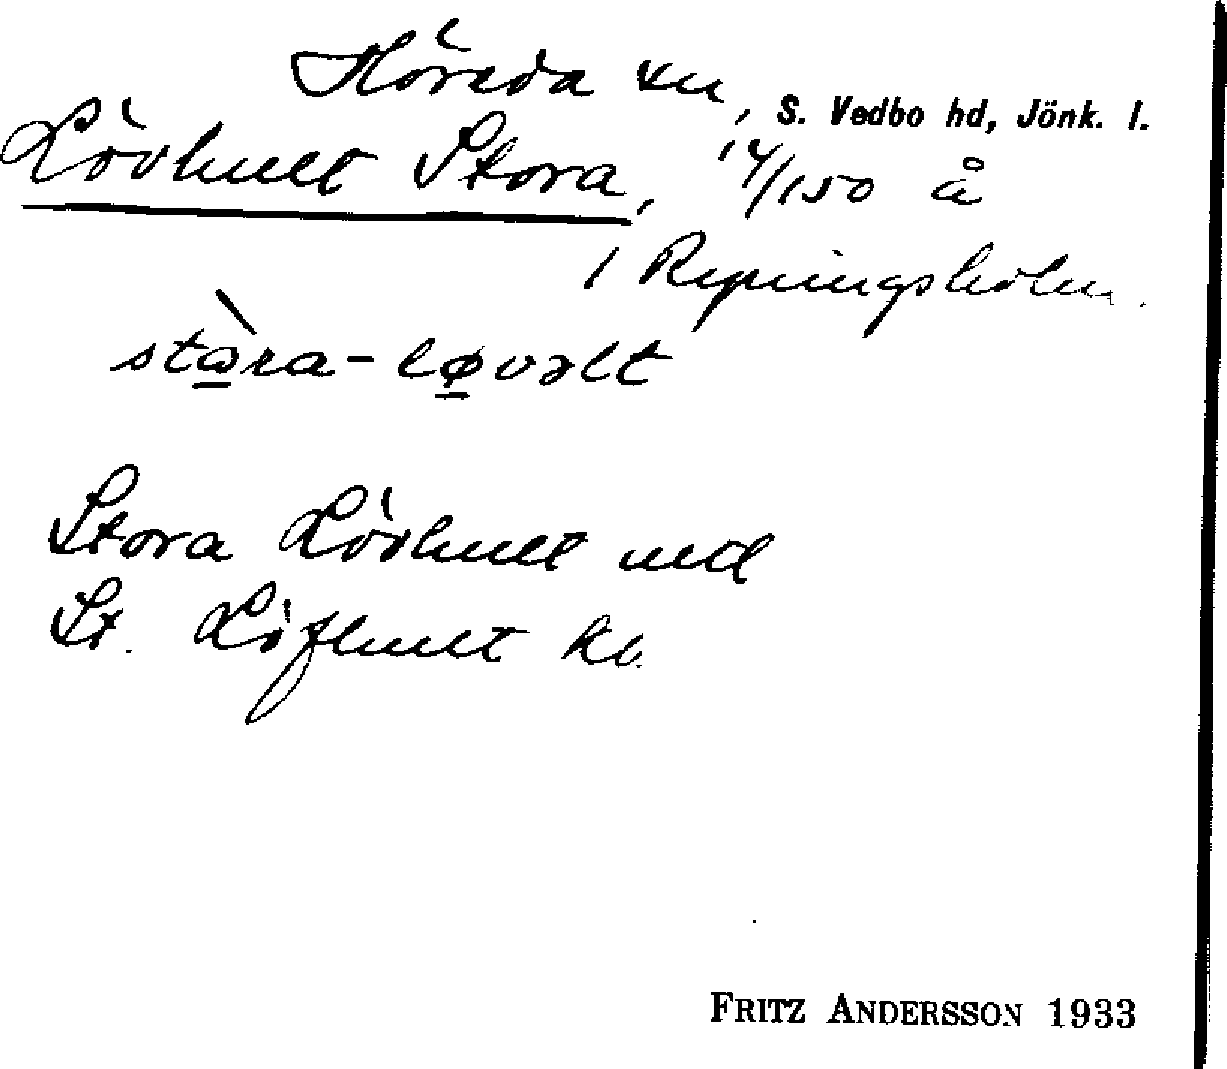 Höreda sn, S. Vedbo hd, Jönk. l.
Lövhult Stora, 14/150 å
1 Ryningsholm.
stɷ̀ra-løvəlt
Stora Lövhult
St. Löfhult kb
FRITZ ANDERSSON 1933